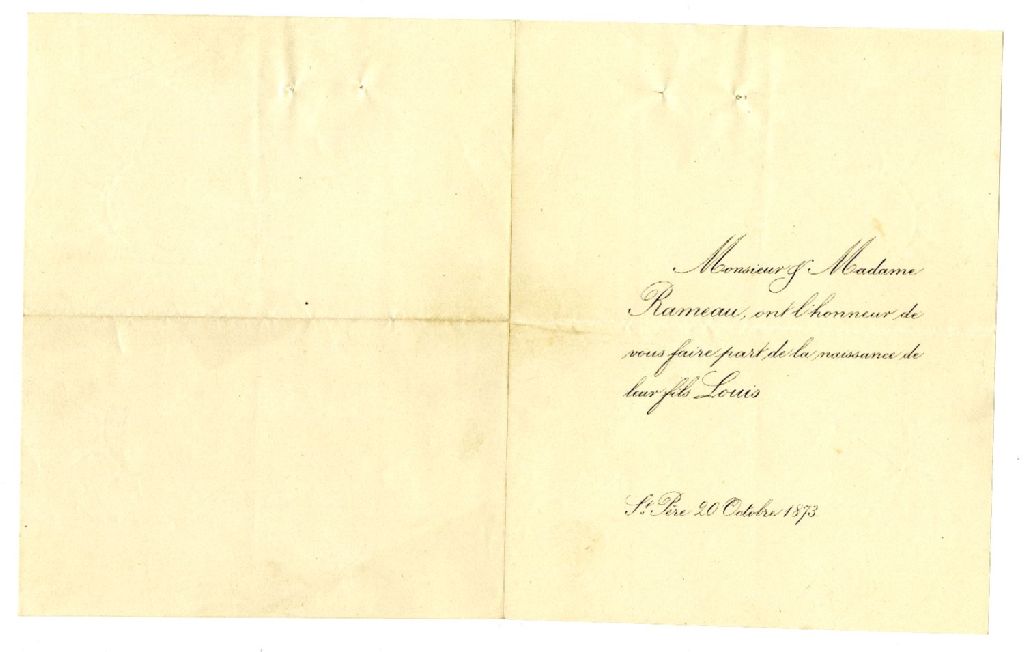 Monsieur & Madame
Rameau, ont l'honneur de
vous faire part de la naissance de
leur fils Louis
St. Père 20 Octobre 1873